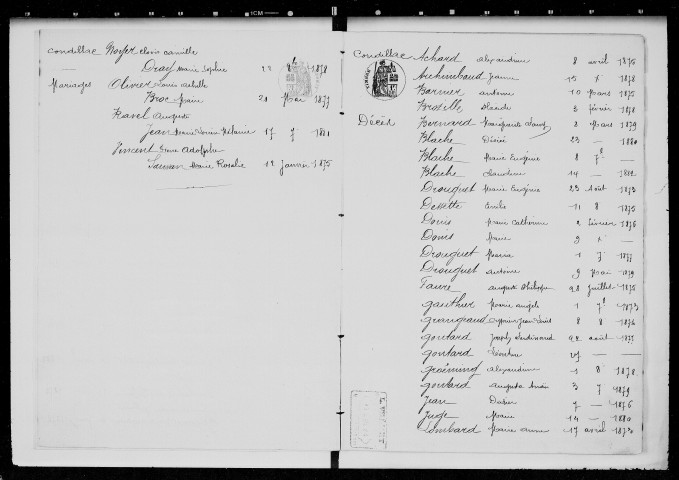 Condillac Noyer Clovis Camille
— Dray Marie Sophie 22 1878
Mariages Olivier Louis Achille
Broc Marie 21 Mai 1877
Ravel Auguste
Jean Marie Mélanie 17 7 1881
Vincent Adolphe
Marie Rosalie 12 Janvier 1875
Condillac Achard Alexandrine 8 avril 1875
Archimbaud Jeanne 15 X 1878
Barnier Antoine 10 Mars 1875
Claude 3 février 1878
Décès Bernard Marguerite 2 Mars 1879
Blache Désiré 23 — 1880
Blache Marie Eugénie 8 7 —
Blache Claudine 14 — 1882
Drouguet Marie Eugénie 23 Août 1873
Emilie 11 8 1875
Donis Marie Catherine 2 février 1876
Donis Marie 9 X —
Drouguet Marie 1 7 1877
Drouguet Antoine 9 Mai 1879
Faure Auguste Philippe 22 Juillet 1875
Gauthier Marie Angèle 1 7 1873
Jean Louis 8 8 1876
Gontard Joseph Ferdinand 22 août 1875
Gontard 27 — —
Alexandrine 1 8 1878
Gontard Auguste 3 7 1879
Jean Didier 7 — 1876
Juge Marie 14 — 1880
Lombard Marie Anne 17 avril 1873